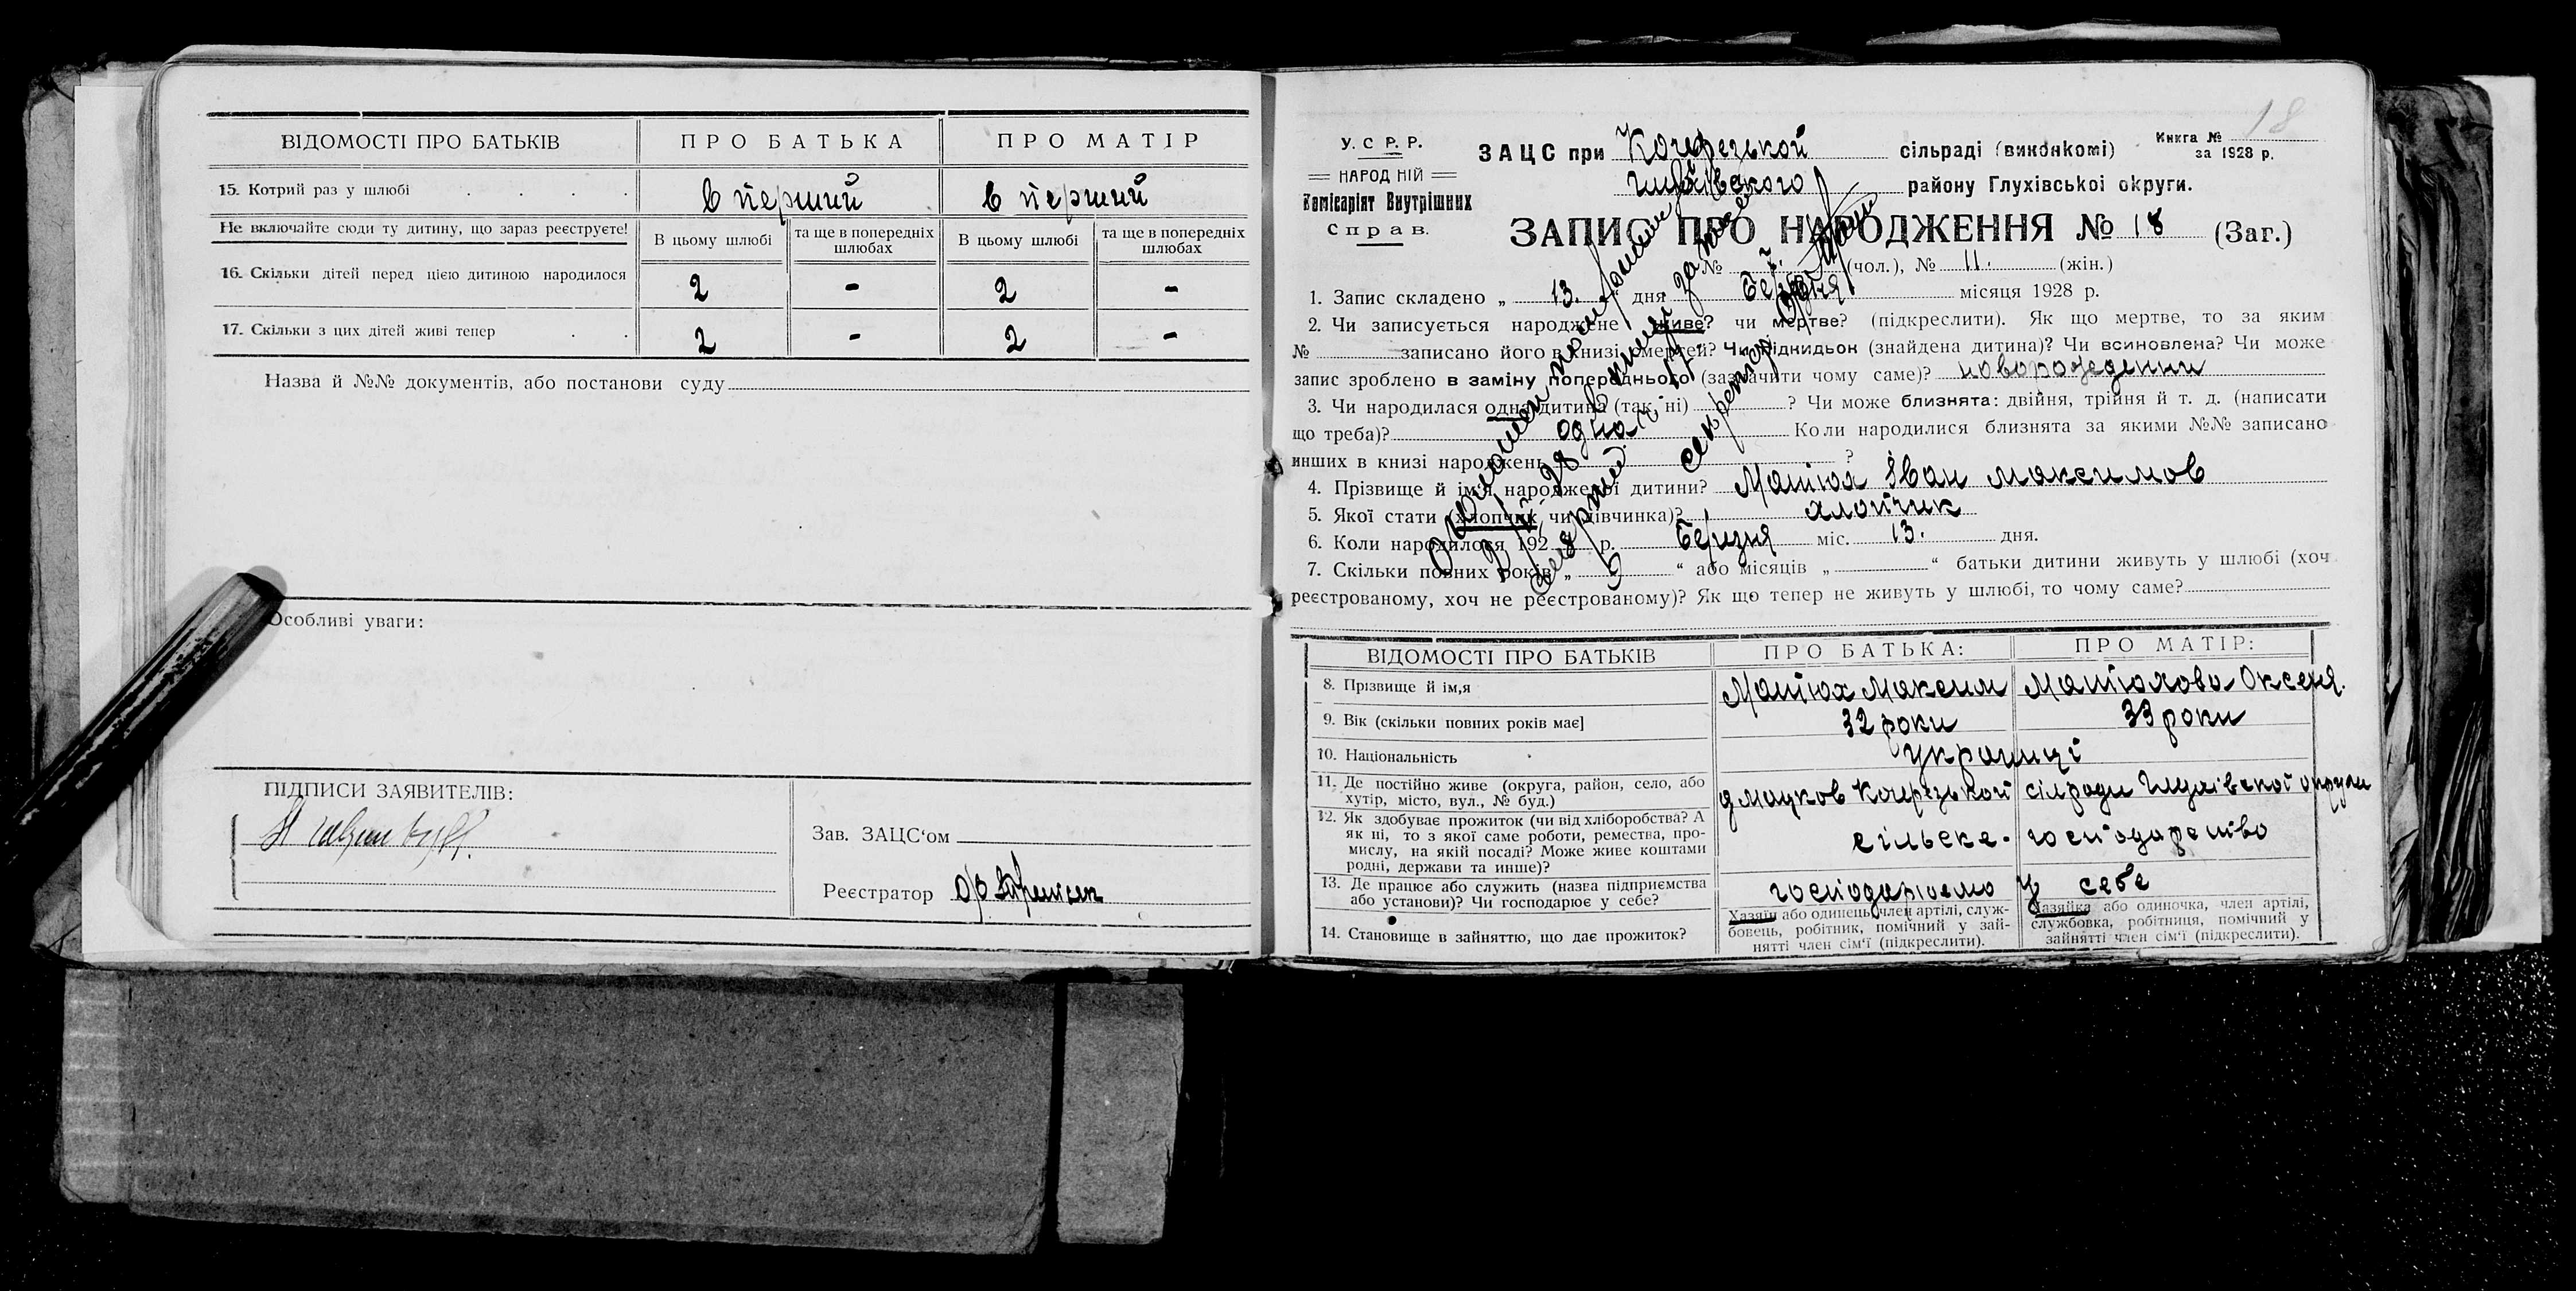 ВІДОМОСТІ ПРО БАТЬКІВ
ПРО БАТЬКА
ПРО МАТІР
15. Котрий раз у шлюбі
в перший
в перший
Не включайте сюди ту дитину, що зараз реєструєте!
В цьому шлюбі
та ще в попередніх шлюбах
В цьому шлюбі
та ще в попередніх шлюбах
16. Скільки дітей перед цією дитиною народилося
2 - 2 -
17. Скільки з цих дітей живі тепер
2 - 2 -
Назва й №№ документів, або постанови суду
Особливі уваги:
ПІДПИСИ ЗАЯВИТЕЛІВ:
Зав. ЗАЦС'ом
Реєстратор
18
У. С Р. Р.
НАРОДНІЙ
Комісаріят Внутрішних
Справ.
ЗАЦС при Кочерезькой сільраді (виконкомі)
Книга №
за 1928 р.
Глухівського району Глухівської округи.
ЗАПИС ПРО НАРОДЖЕННЯ № 18 (Заг.)
№ 7. (чол.), № 11. (жін.)
1. Запис складено „ 13. " дня Березня місяця 1928 р.
2. Чи записується народжене живе? чи мертве? (підкреслити). Як що мертве, то за яким
№ записано його в книзі смертей? Чи підкидьок (знайдена дитина)? Чи всиновлена? Чи може
запис зроблено в заміну попереднього (зазначити чому саме)? новорожедении
3. Чи народилася одна дитина (так, ні) ? Чи може близнята: двійня, трійня й т. д. (написати
що треба)? одна Коли народилися близнята за якими №№ записано
инших в книзі народжень ?
4. Прізвище й ім'я народженої дитини? Матюх Іван Максимов
5. Якої стати (хлопчик чи дівчинка)? хлопчик
6. Коли народилося 1928 р. Березня міс. 13. дня.
7. Скільки повних років „ 9 " або місяців „ " батьки дитини живуть у шлюбі (хоч
реєстрованому, хоч не реєстрованому)? Як що тепер не живуть у шлюбі, то чому саме?
ВІДОМОСТІ ПРО БАТЬКІВ
ПРО БАТЬКА:
ПРО МАТІР:
8. Прізвище й ім,я
Матюх Максим
Матюхова Оксеня.
9. Вік (скільки повних років має]
32 роки
33 роки
10. Національність
Українці
11. Де постійно живе (округа, район, село, або
хутір, місто, вул., № буд.)
Кочерезької сілради Глухівської округи
12. Як здобуває прожиток (чи від хліборобства? А
як ні, то з якої саме роботи, ремества, про-
мислу, на якій посаді? Може живе коштами
родні, держави та инше)?
сільске-господарство
13. Де працює або служить (назва підприємства
або установи)? Чи господарює у себе?
господарюємо у себе
14. Становище в зайняттю, що дає прожиток?
Хазяїн або одинець, член артілі, служ-
бовець, робітник, помічний у зай-
нятті член сім'ї (підкреслити).
Хазяйка або одиночка, член артілі,
службовка, робітниця, помічний у
зайнятті член сім'ї (підкреслити).